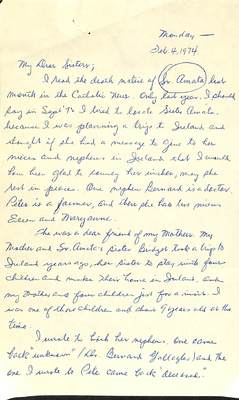 Monday —
Feb. 4, 1974.
My Dear Sisters;
I read the death notice of Sr. Amata last
month in the Catholic News. Only last year, I should
say in Sept '72 I tried to locate Sister Amata
because I was planning a trip to Ireland and
thought if she had a message to give to her
nieces and nephews in Ireland that I would
have been glad to convey her wishes, may she
rest in peace. One nephew Bernard is a doctor.
Peter is a farmer, and there she has two nieces
Eileen and Maryanne.
She was a dear friend of my Mother. My
Mother and Sr. Amata's sister Bridget took a trip to
Ireland years ago, her sister to stay with four
children and make their home in Ireland, and
my mother and four children just for a visit. I
was one of those children and about 9 years old at the
time.
I wrote to both her nephews. One came
back "unknown" (Dr. Bernard Gallagher) and the
one I wrote to Pete came back "deceased."